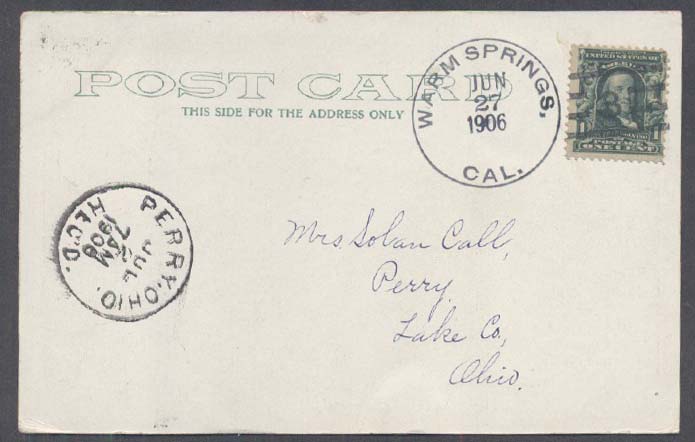 POST CARD
THIS SIDE FOR THE ADDRESS ONLY
WARM SPRINGS,
JUN
27
1906
CAL.
UNITED STATES OF
POSTAGE
ONE CENT
PERRY, OHIO.
JUL
7 AM
1906
REC'D.
Mrs. Solan Call,
Perry
Lake Co.,
Ohio.